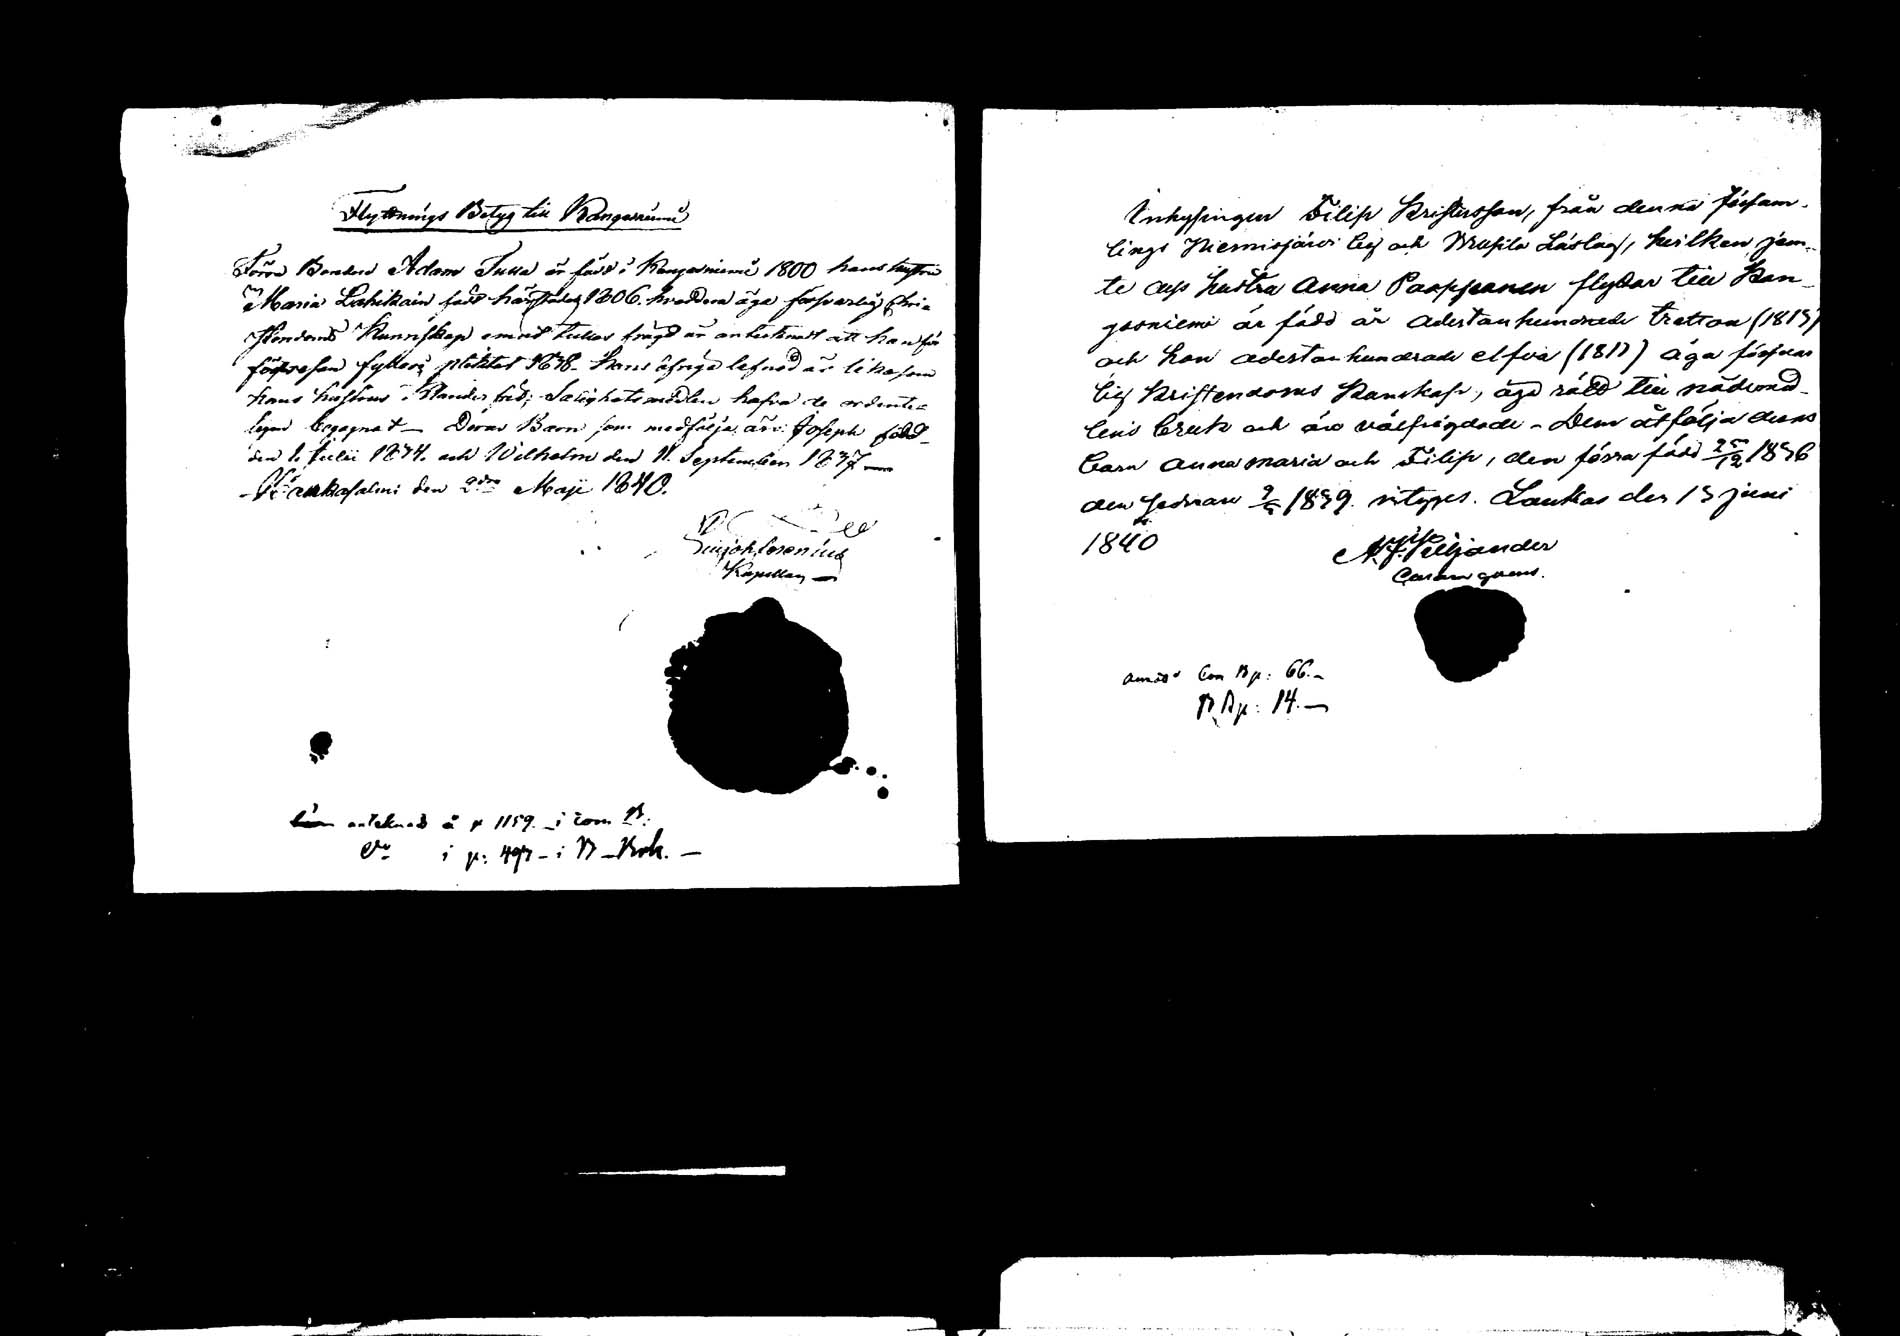 Flyttnings Betyg till Kangasniemi
Förra Bonden Adam Tukia är född i Kangasniemi 1800 hans hustru
Maria Lahikain född härstädes 1806. hvardera äga försvarlig Chri-
stendoms Kunnskap emot Tukias frägd är antecknadt att han för
förseelsen fyllori pliktat 1838. Hans öfriga lefnad är likasom
hans hustrus oklanderlig; Salighetsmedlen hafva de ordente-
ligen begagnat – Deras Barn som medfölja äro: Joseph född
den 1. Julii 1834. och Wilhelm den 11. September 1837 –
Hankasalmi den 2dra Maji 1840.
Kapellan
anteknad å p 1159. – i Com B:
do i p: 497 – i B – Bok. –
Inhysingen Filip Kristersson, från denna försam-
lings Niemisjärvi by och Krapila Låslag, hvilken jem-
te dess hustru Anna Paappanen flyttar till Kan-
gasniemi är född år adertonhundrade tretton (1813)
och hon adertonhundrade elfva (1811) äga försvar
lig Kristendoms Kunskap, äga rätt till nådemed-
lens bruk och äro välfrägdade – Dem åtfölja deras
barn Anna Maria och Filip, den förra född 25/12 1836
den sednare 9/5 1839. vitsgves. Laukas den 13 juni
1840
Coram
Con Bp: 66. –
B. Bp: 14. –